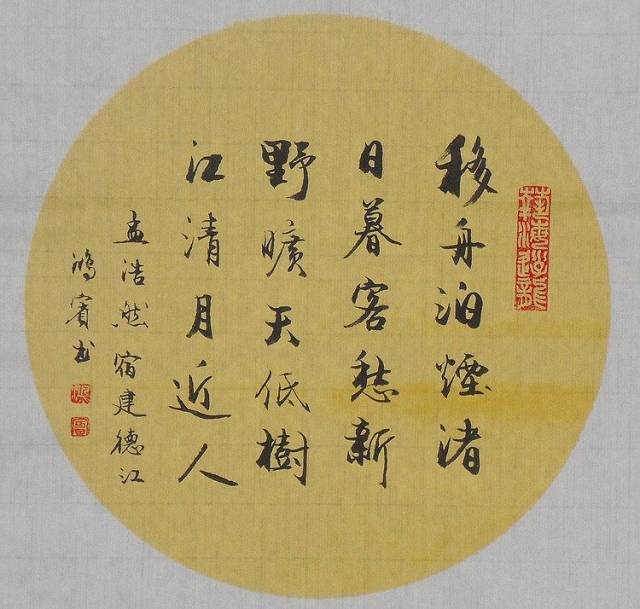 移舟泊煙渚
日暮客愁新
野曠天低樹
江清月近人
孟浩然宿建德江
鴻賓书